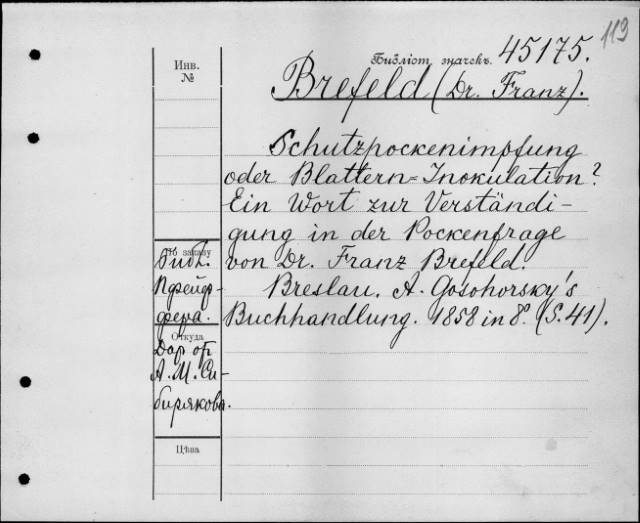 119
Библіот. значекъ. 45175.
Инв.
№
Brefeld (Dr. Franz).
Schutzpockenimpfung
oder Blattern=Inokulation?
Ein Wort zur Verständi-
gung in der Pockenfrage
von Dr. Franz Brefeld.
Breslau. A. Gosohorsky's
Buchhandlung. 1858 in 8º. (S. 41).
По заказу
Библ.
Пфейф-
фера.
Откуда
Дар от
А. М. Си-
бирякова.
Цѣна